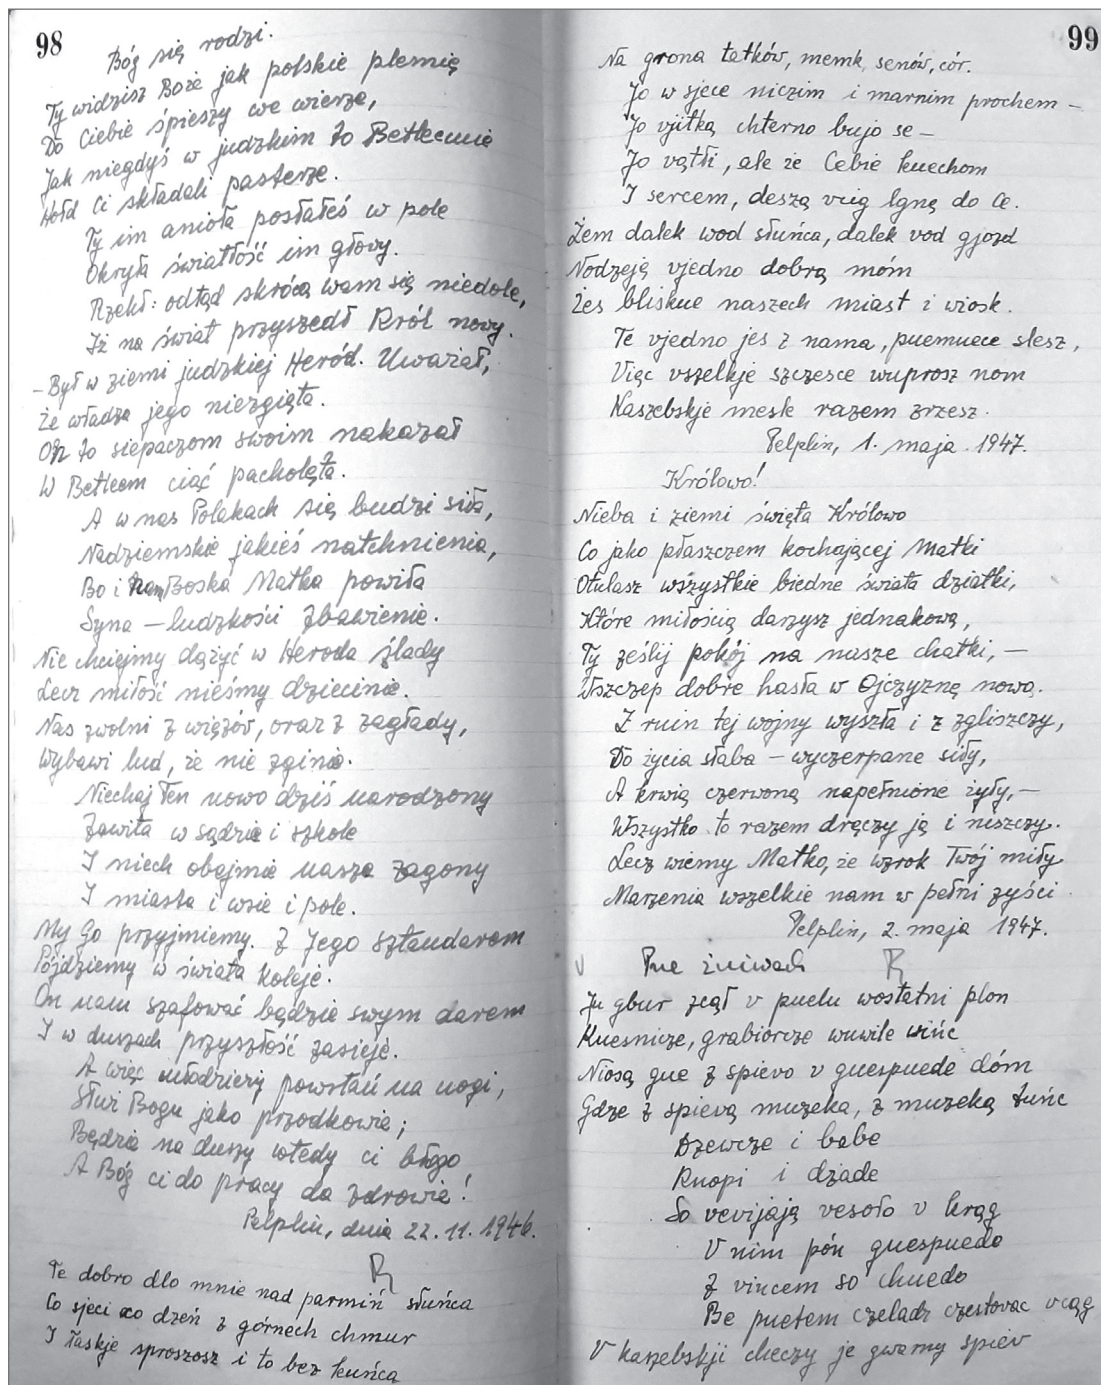 98
Bóg się rodzi.
Ty widzisz Boże jak polskie plemię
Do Ciebie śpieszy we wierze,
Jak niegdyś w judzkim to Betleemie
Hołd Ci składali pasterze.
Ty im anioła posłałeś w pole
Okryła światłość im głowy.
Rzekł: odtąd skrócą wam się niedole,
Iż na świat przyszedł Król nowy.
– Był w ziemi judzkiej Heród. Uważał,
Że władza jego niezgięta.
On to siepaczom swoim nakazał
W Betleem ciąć pacholęta.
A w nas Polakach się budzi siła,
Nadziemskie jakieś natchnienia,
Bo i nam Boska Matka powiła
Syna – ludzkości Zbawienie.
Nie chciejmy dążyć w Heroda ślady
Lecz miłość nieśmy dziecinie.
Nas zwolni z więzów, oraz z zagłady,
Wybawi lud, że nie zginie.
Niechaj Ten nowo dziś narodzony
Zawita w sądzie i szkole
I niech obejmie nasze zagony
I miasta i wsie i pole.
My Go przyjmiemy. Z Jego sztandarem
Pójdziemy w świata koleje.
On nam szafować będzie swym darem
I w duszach przyszłość zasieje.
A więc młodzieży powstań na nogi,
Służ Bogu jako przodkowie;
Będzie na duszy wtedy ci błogo
A Bóg ci do pracy da zdrowie!
Pelplin, dnia 22.11.1946.
R
Te dobro dlo mnie nad parmiń słuńca
Co sjeci co dzeń z górnech chmur
I łaskje sproszosz i to bez kuńca
99
Na grona tatków, memk, senów, cór.
Jo w sjece niczim i marnim prochem –
Jo vjitką chterno bujo se –
Jo vątłi, ale że Cebie kuechom
I sercem, deszą vcig lgnę do Ce.
Żem dalek wod słuńca, dalek vod gjozd
Nodzeją vjedno dobrą móm
Żes bliskue naszech miast i wiosk.
Te vjedno jes z nama, puemuece slesz,
Viąc vszelkje szczesce wuprosz nom
Kaszebskje mesle razem zrzesz.
Pelplin, 1. maja 1947.
Królowo!
Nieba i ziemi święta Królowo
Co jako płaszczem kochającej Matki
Otulasz wszystkie biedne świata dziatki,
Które miłością darzysz jednakową,
Ty ześlij pokój na nasze chatki, –
Wszczep dobre hasła w Ojczyznę nową.
Z ruin tej wojny wyszła i z zgliszczy,
Do życia słaba – wyczerpane siły,
A krwią czerwoną napełnione żyły, –
Wszystko to razem dręczy ją i niszczy.
Lecz wiemy Matko, że wzrok Twój miły
Marzenia wszelkie nam w pełni ziści
Pelplin, 2. maja 1947.
V Pue żniwach R
Ju gbur zcął v puelu wostatni plon
Kuesnicze, grabiorcze wuwile wińc
Niosą gue z spievo v guespuede dóm
Gdze z spievą muzeka, z muzeką tuńc
Dzewcze i babe
Knopi i dzade
So vevijają vesoło v krąg
V nim pón guespuedo
Z vincem so chuedo
Be puetem czeladz czestovac vcąg
V kaszebskji checzy je gwarny spiév